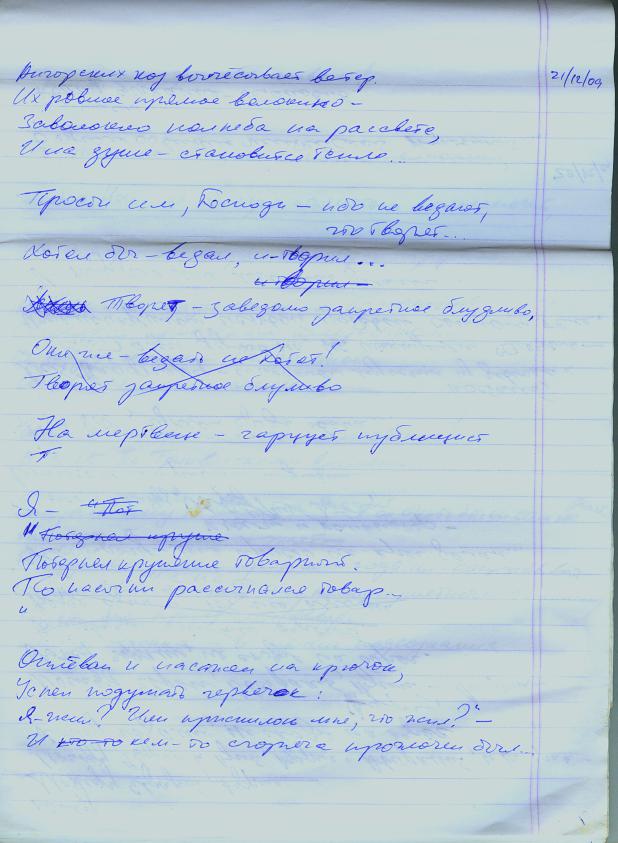 Ангорских коз вычёсывает ветер.
21/12/09
Их ровное прямое волокно –
Заволокло полнеба на рассвете,
И на душе – становится тепло...
Прости им, Господи – ибо не ведают,
что творят...
Хотел бы – ведал, и – творил...
и творил –
Творят – заведомо запретное блудливо,
Они же – ведать не хотят!
Творят запретное блудливо
На мертвеце – гарцует публицист
Т
Я – "Пот
" Потерпел круше
Потерпел крушение товарный.
По насыпи рассыпался товар...
"
Оплёван и насажен на крючок,
Успел подумать червячок:
Я – жил? Или приснилось мне, что жил?" –
И кто-то кем-то сгоряча проглочен был...